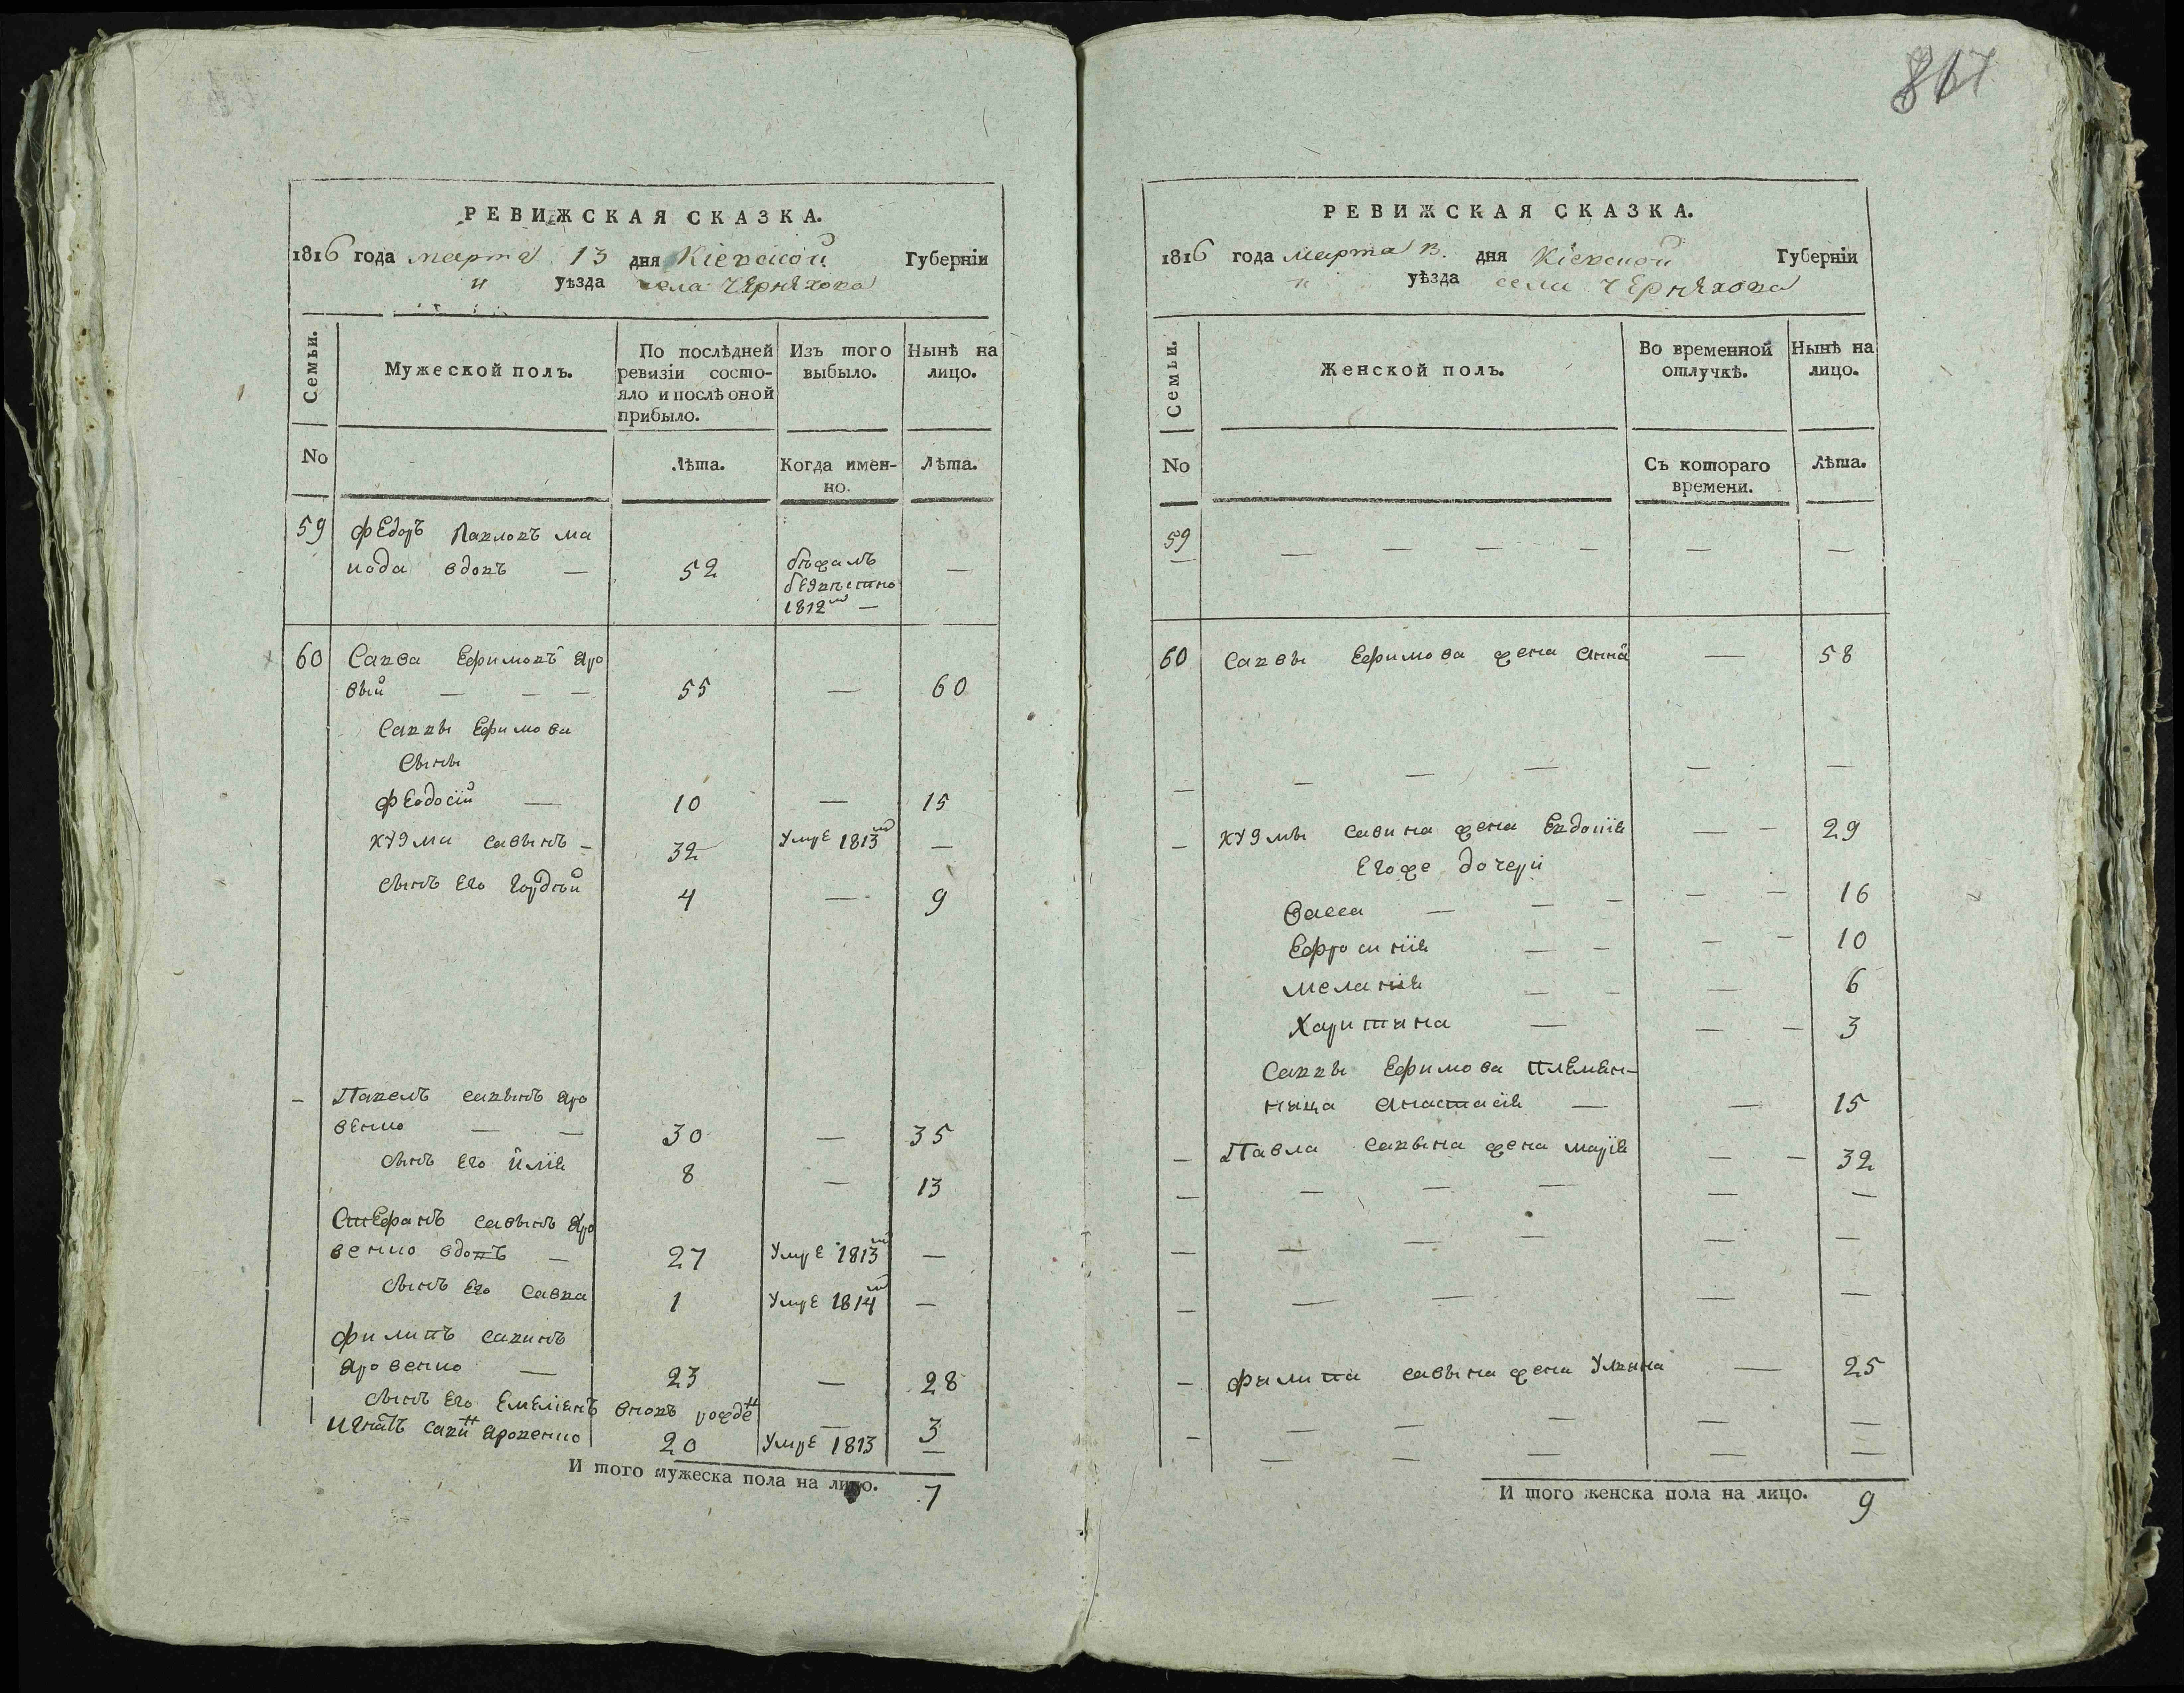 817
РЕВИЖСКАЯ СКАЗКА.
1816 года марта 13 дня Кіевской Губерніи
и уѣзда села Черняхова
Семьи.
Мужеской полъ.
По послѣдней ревизіи состо-
яло и послѣ оной
прибыло.
Изъ того
выбыло.
Нынѣ на
лицо.
No
Лѣта.
Когда имен-
но.
Лѣта.
59 Федоръ Павловъ ма
кода вдовъ — 52 бѣжалъ —
безвѣстно
1812го —
60 Савва Ефимовъ Яро
вый — — — 55 — 60
Саввы Ефимова
сыны
Феодосій — 10 — 15
Кузма Савинъ — 32 Умре 1813го —
сынъ его Гордѣй 4 — 9
— Павелъ Савинъ Яро
венко — — 30 — 35
сынъ его Илія 8 — 13
Стефанъ Савинъ Яро
венко вдовъ — 27 Умре 1813го —
сынъ его Савка 1 Умре 1814го —
Филипъ Савинъ
Яровенко — 23 — 28
сынъ его Емеліянъ вновь рожден — 3
Игнатъ Савин Яровенко 20 Умре 1813 —
И того мужеска пола на лицо. 7
РЕВИЖСКАЯ СКАЗКА.
1816 года марта 13. дня Кіевской Губерніи
и уѣзда села Черняхова
Семьи.
Женской полъ.
Во временной
отлучкѣ.
Нынѣ на
лицо.
No
Съ котораго
времени.
Лѣта.
59 — — — — — —
60 Саввы Ефимова жена Анна — 58
— — — — — —
— Кузмы Савина жена Евдокія — — 29
Егоже дочери
Васса — — — — — 16
Ефросинія — — — — 10
Меланія — — — 6
Харитина — — — 3
Саввы Ефимова племян-
ница Анастасія — — 15
— Павла Савина жена Марія — — 32
— — — — — —
— — — — — —
— — — — —
— Филипа Савина жена Уляна — 25
— — — — — —
— — — — —
И того женска пола на лицо. 9